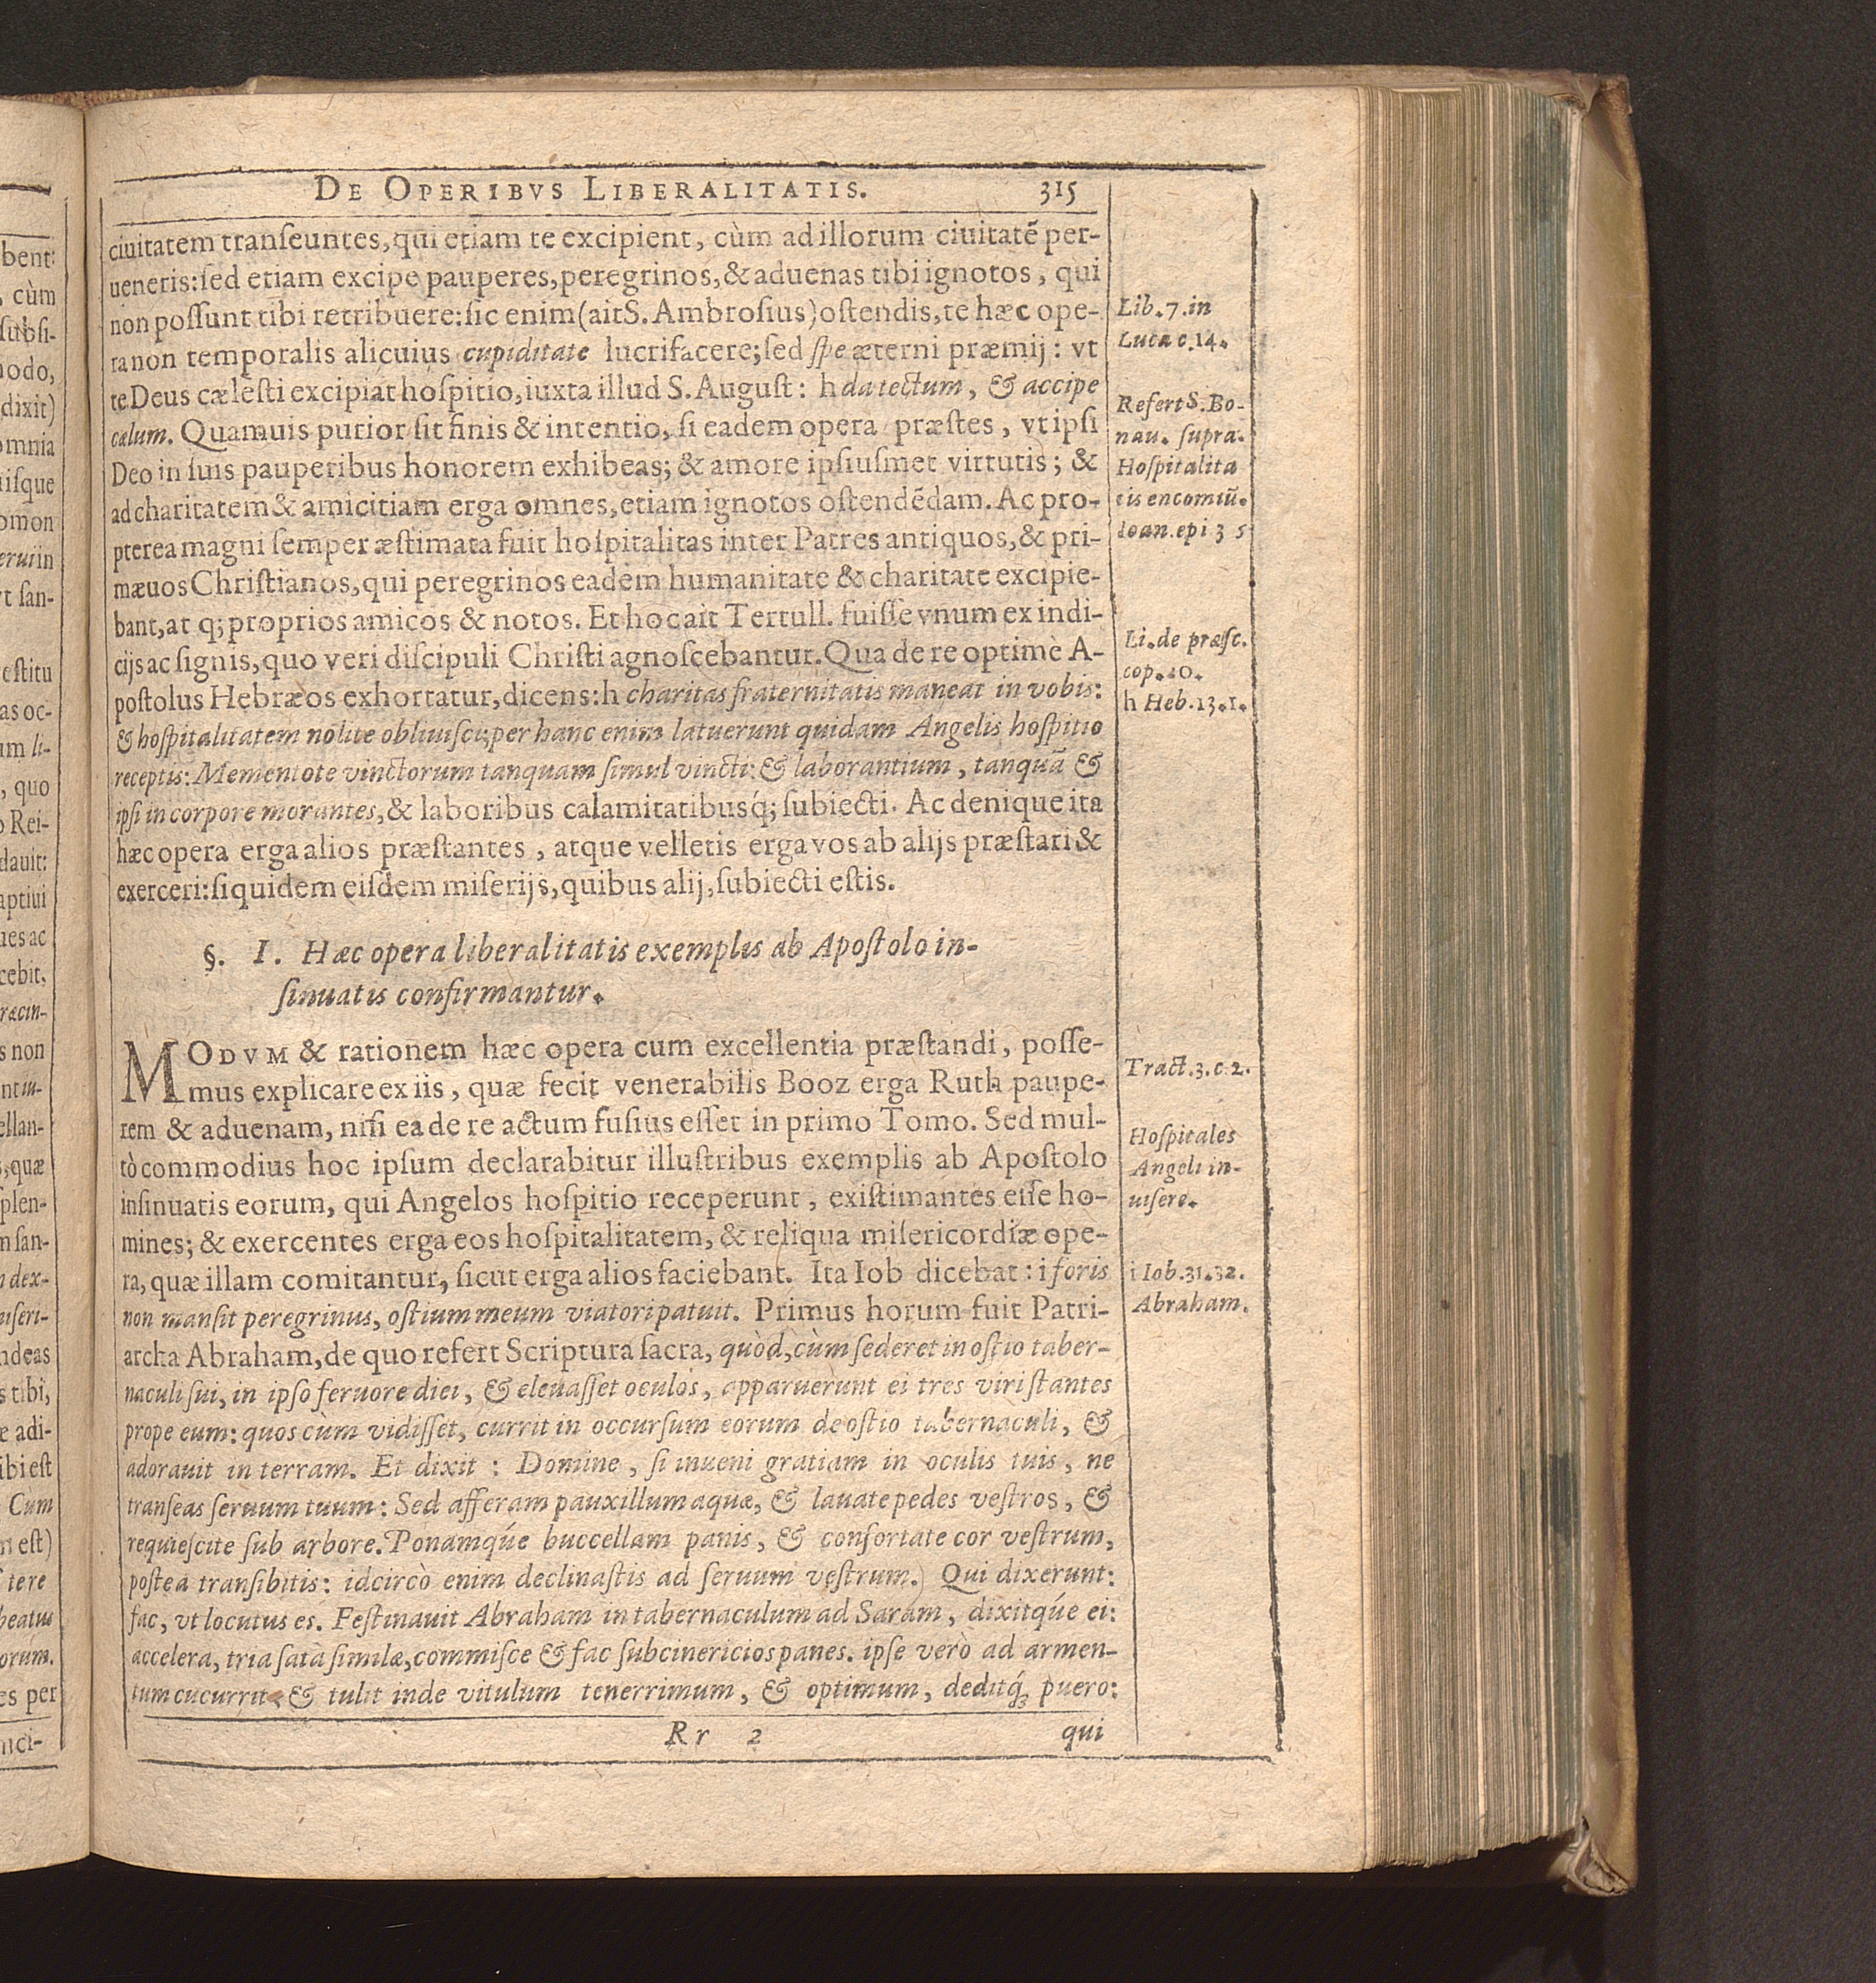 DE OPERIBVS LIBERALITATIS. 315
ciuitatem tranſeuntes, qui etiam te excipient, cùm ad illorum ciuitatẽ per-
ueneris: ſed etiam excipe pauperes, peregrinos, & aduenas tibi ignotos, qui
non poſſunt tibi retribuere: ſic enim (ait S. Ambroſius) oſtendis, te hæc ope-
ra non temporalis alicuius cupiditate lucrifacere; ſed ſpe æterni præmij: vt
te Deus cæleſti excipiat hoſpitio, iuxta illud S. Auguſt: h da tectum, & accipe
cælum. Quamuis purior ſit finis & intentio, ſi eadem opera præſtes, vt ipſi
Deo in ſuis pauperibus honorem exhibeas; & amore ipſiuſmet virtutis; &
ad charitatem & amicitiam erga omnes, etiam ignotos oſtendẽdam. Ac pro-
pterea magni ſemper æſtimata fuit hoſpitalitas inter Patres antiquos, & pri-
mæuos Chriſtianos, qui peregrinos eadem humanitate & charitate excipie-
bant, at q; proprios amicos & notos. Et hoc ait Tertull. fuiſſe vnum ex indi-
cijs ac ſignis, quo veri diſcipuli Chriſti agnoſcebantur. Qua de re optimè A-
poſtolus Hebræos exhortatur, dicens: h charitas fraternitatis maneat in vobis:
& hoſpitalitatem nolite obliuiſci; per hanc enim latuerunt quidam Angelis hoſpitio
receptis: Mementote vinctorum tanquam ſimul vincti: & laborantium, tanquã &
ipſi in corpore morantes, & laboribus calamitatibusq́; ſubiecti. Ac denique ita
hæc opera erga alios præſtantes, atque velletis erga vos ab alijs præſtari &
exerceri: ſiquidem eiſdem miſerijs, quibus alij, ſubiecti eſtis.
§. I. Hæc opera liberalitatis exemplis ab Apoſtolo in-
ſinuatis confirmantur.
MODVM & rationem hæc opera cum excellentia præſtandi, poſſe-
mus explicare ex iis, quæ fecit venerabilis Booz erga Ruth paupe-
rem & aduenam, niſi ea de re actum fuſius eſſet in primo Tomo. Sed mul-
tò commodius hoc ipſum declarabitur illuſtribus exemplis ab Apoſtolo
inſinuatis eorum, qui Angelos hoſpitio receperunt, exiſtimantes eſſe ho-
mines; & exercentes erga eos hoſpitalitatem, & reliqua miſericordiæ ope-
ra, quæ illam comitantur, ſicut erga alios faciebant. Ita Iob dicebat: i foris
non manſit peregrinus, oſtium meum viatori patuit. Primus horum fuit Patri-
archa Abraham, de quo refert Scriptura ſacra, quòd, cùm ſederet in oſtio taber-
naculi ſui, in ipſo feruore diei, & eleuaſſet oculos, apparuerunt ei tres viri ſtantes
prope eum: quos cùm vidiſſet, currit in occurſum eorum de oſtio tabernaculi, &
adorauit in terram. Et dixit: Domine, ſi inueni gratiam in oculis tuis, ne
tranſeas ſeruum tuum: Sed afferam pauxillum aquæ, & lauate pedes veſtros, &
requieſcite ſub arbore. Ponamqúe buccellam panis, & confortate cor veſtrum,
poſtea tranſibitis: idcircò enim declinaſtis ad ſeruum veſtrum.) Qui dixerunt:
fac, vt locutus es. Feſtinauit Abraham in tabernaculum ad Saram, dixitqúe ei:
accelera, tria ſata ſimilæ, commiſce & fac ſubcinericios panes. ipſe verò ad armen-
tum cucurrit, & tulit inde vitulum tenerrimum, & optimum, deditq́; puero:
Rr 2 qui
Lib. 7. in
Luca c. 14.
Refert S. Bo-
nau. ſupra.
Hoſpitalita
tis encomiũ.
Ioan. epi 3 5
Li. de præſc.
cop. 20.
h Heb. 13. 1.
Tract. 3. c. 2.
Hoſpitales
Angeli in-
uiſere.
i Iob. 31. 32.
Abraham.
bent:
, cùm
ſubſi-
nodo,
dixit)
omnia
uiſque
omon
erui in
vt ſan-
eſtitu
as oc-
um li-
, quo
o Rei-
dauit:
aptiui
ues ac
cebit,
ræcin-
s non
nt in-
ellan-
s, quæ
plen-
m ſan-
n dex-
iſeri-
ndeas
s tibi,
æ adi-
ibi eſt
Cum
n eſt)
tere
beatus
orum.
es per
nci-